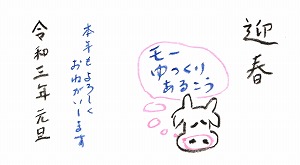 迎春
モー
ゆっくり
あるこう
本年もよろしく
おねがいします
令和三年 元旦